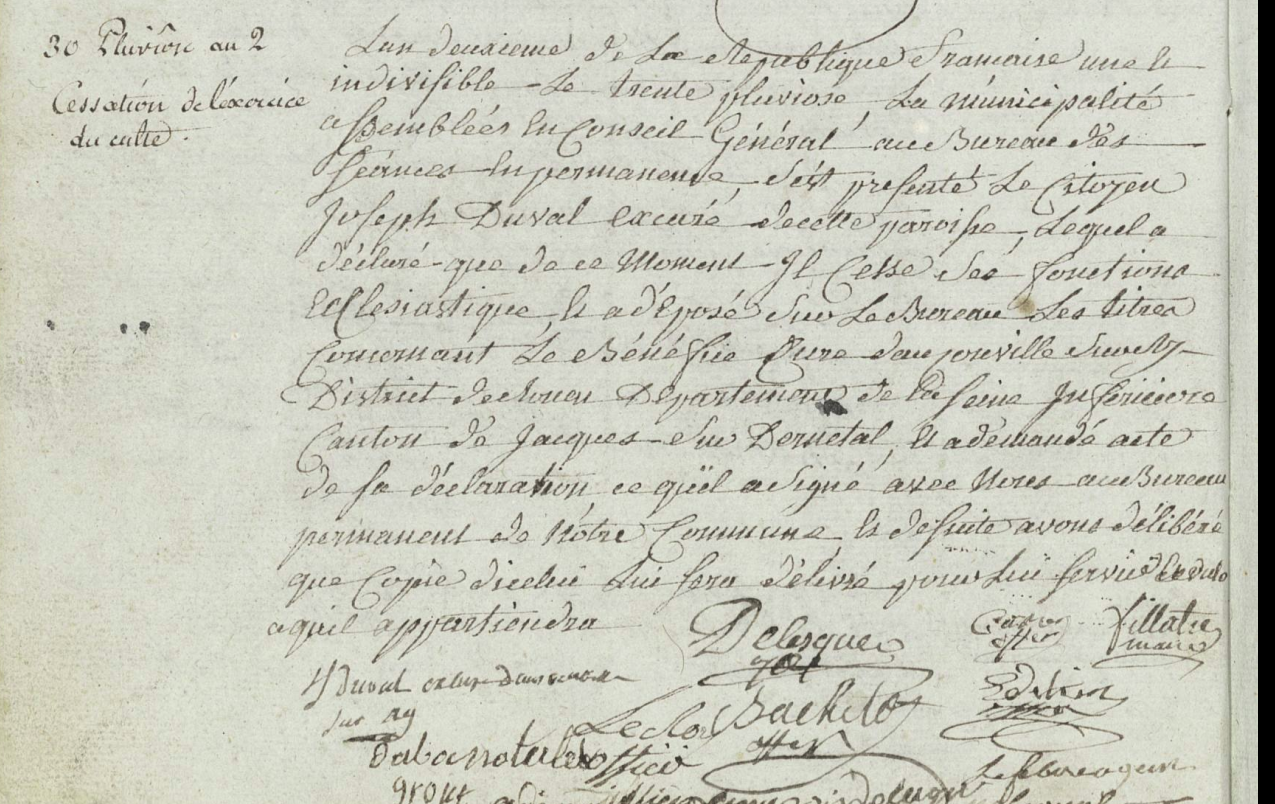 30 Pluviôse an 2
Cessation de l'éxercice
du culte.
Lan deuxieme de La Republique Francaise une &
indivisible - Le trente pluviose, La municipalité
assemblées En Conseil Général au Bureau des
séances En permanence, s'est presenté Le Citoyen
Joseph Duval Excuré de cette paroisse, Lequel a
déclaré que de ce Moment Il Cesse ses fonctions
Ecclesiastique, & a déposé Sur Le Bureau Les titres
Concernant Le Bénéfice Cure dauzouville Sur Ry
District de Rouen Departement de la Seine Inferieure
Canton de Jacques Sur Dernetal, & a demandé acte
de sa déclaration, ce quïl a Signé avec Nous au Bureau
permanent de Nôtre Commune, & de suite avons délibéré
que Copie dicelui Lui sera délivré pour Lui servir
a quil appartiendra
Delesque
off
Villatre
maire
J Duval excuré dauzouville
sur Ry
Leclerc Bachelet
offer
officier
grout